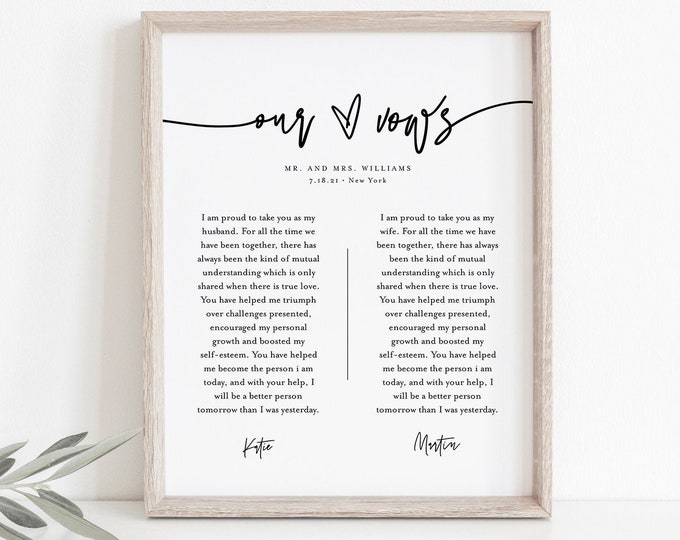 our vows
MR. AND MRS. WILLIAMS
7.18.21 • New York
I am proud to take you as my
husband. For all the time we
have been together, there has
always been the kind of mutual
understanding which is only
shared when there is true love.
You have helped me triumph
over challenges presented,
encouraged my personal
growth and boosted my
self-esteem. You have helped
me become the person i am
today, and with your help, I
will be a better person
tomorrow than I was yesterday.
Katie
I am proud to take you as my
wife. For all the time we have
been together, there has always
been the kind of mutual
understanding which is only
shared when there is true love.
You have helped me triumph
over challenges presented,
encouraged my personal
growth and boosted my
self-esteem. You have helped
me become the person i am
today, and with your help, I
will be a better person
tomorrow than I was yesterday.
Martin